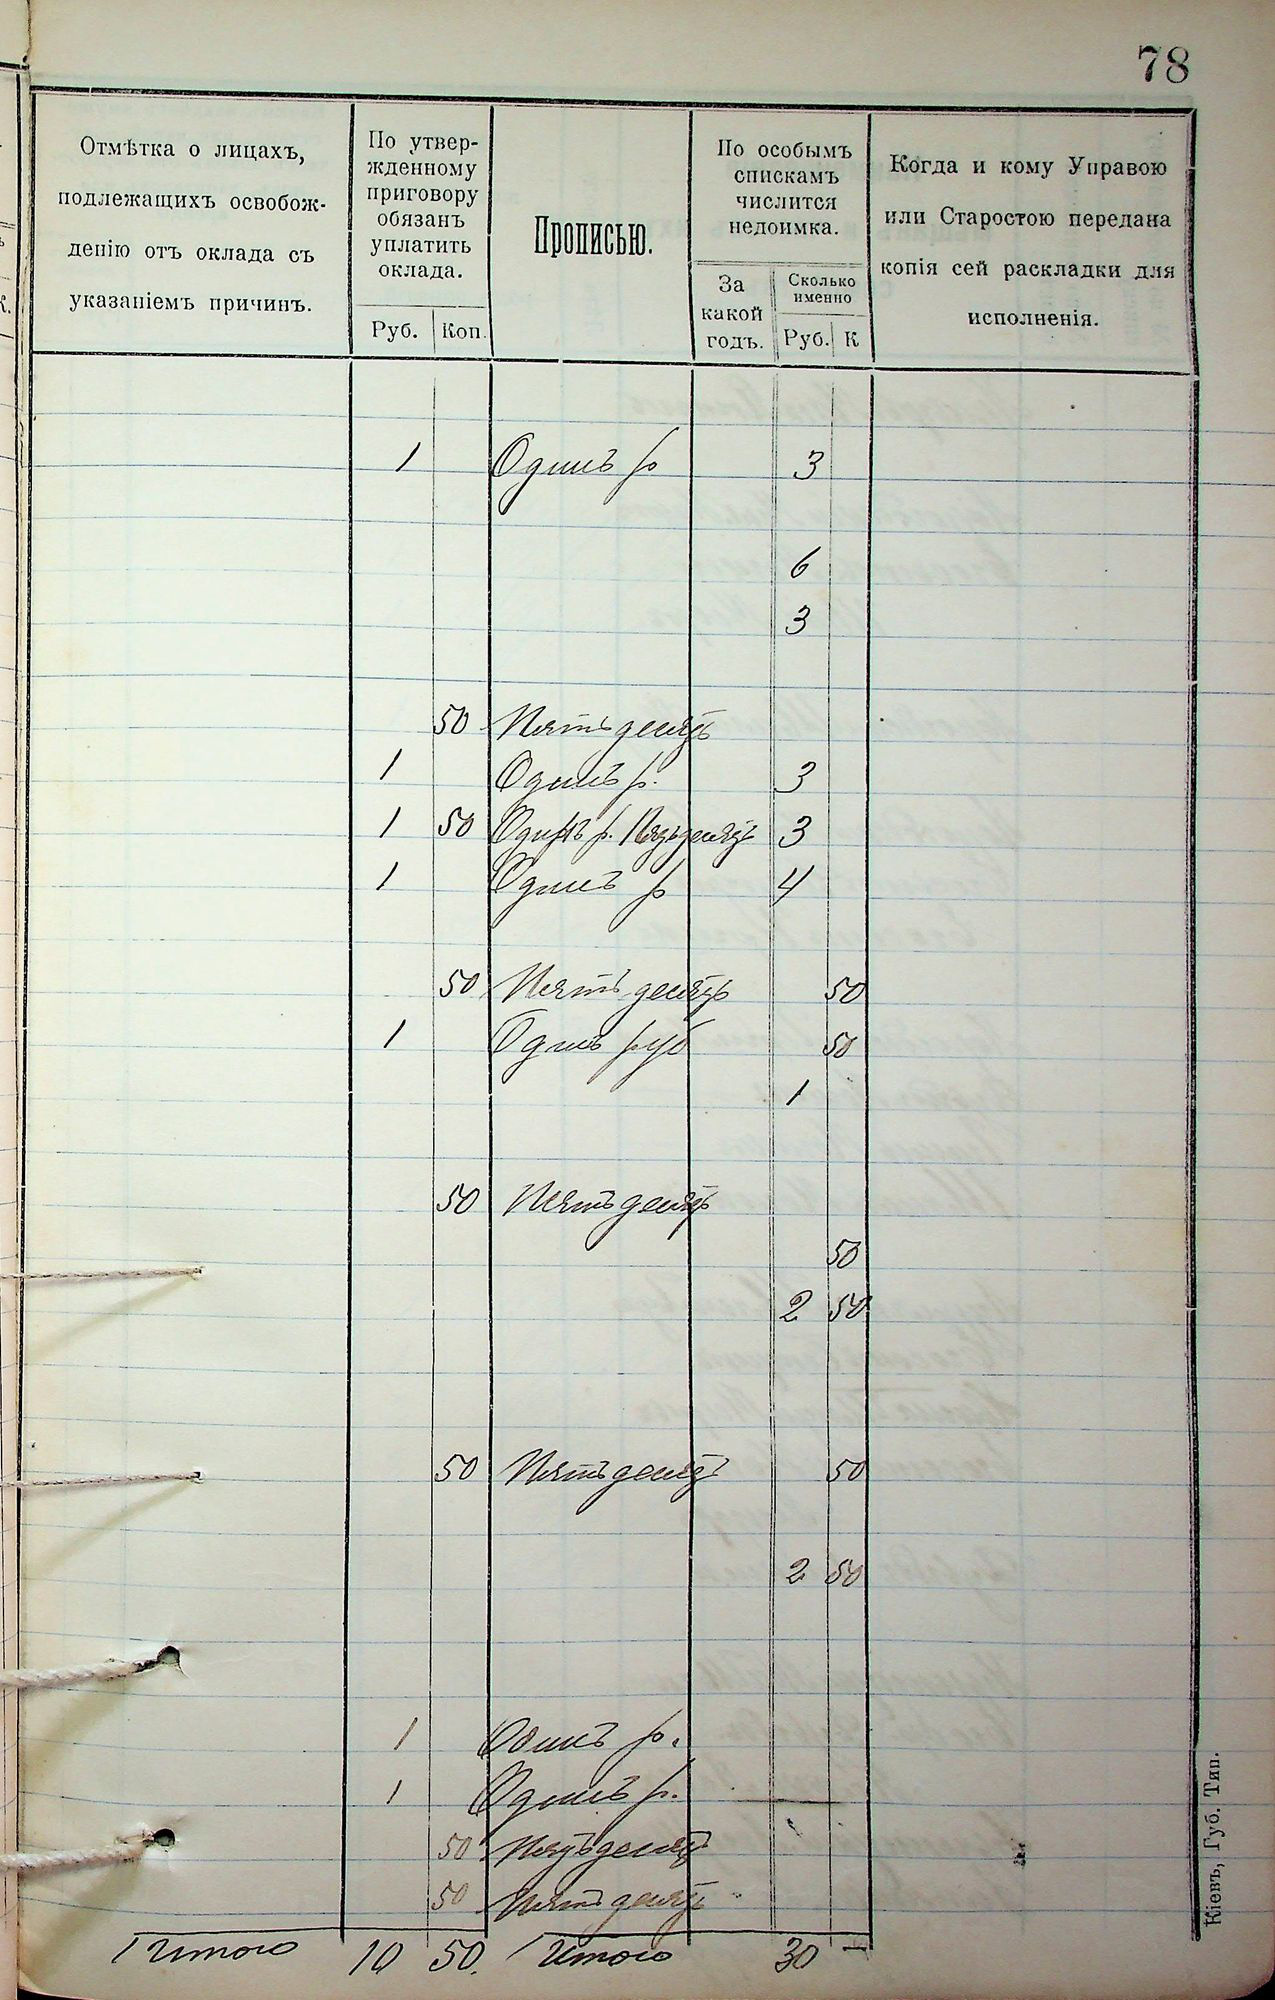 78
Отмѣтка о лицахъ,
подлежащихъ освобож-
денію отъ оклада съ
указаніемъ причинъ.
По утвер-
жденному
приговору
обязанъ
уплатить
оклада.
Руб. Коп.
Прописью.
По особымъ
спискамъ
числится
недоимка.
За
какой
годъ.
Сколько
именно
Руб. К
Когда и кому Управою
или Старостою передана
копія сей раскладки для
исполненія.
1 Одинъ р 3
6
3
50 Пятьдесятъ
1 Одинъ р. 3
1 50 Одинъ р. Пятьдесятъ 3
1 Одинъ р 4
50 Пятьдесятъ 50
1 Одинъ руб 50
1
50 Пятьдесятъ
50
2 50
50 Пятьдесятъ 50
2 50
1 Одинъ р.
1 Одинъ р.
50 Пятьдесятъ
50 Пятьдесятъ
Итого 10 50. Итого 30
Кіевъ, Губ. Тип.